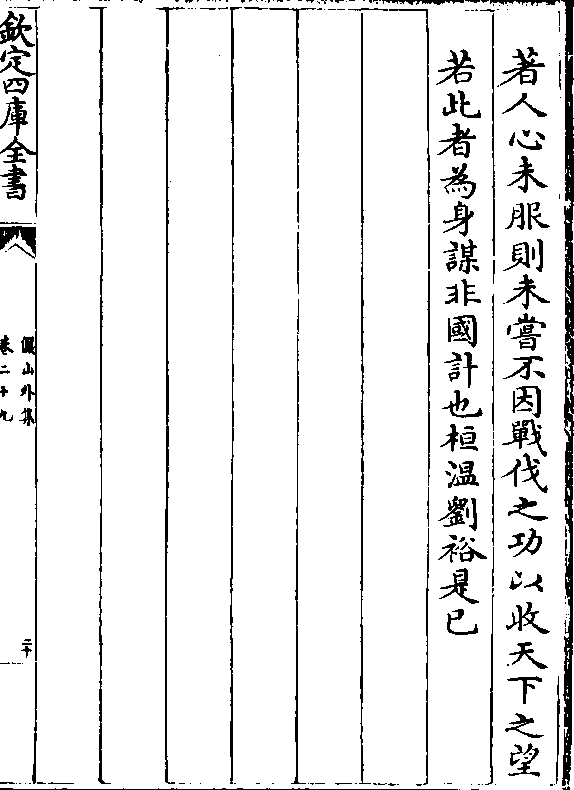 著人心未服則未嘗不因戰伐之功以收天下之望
若此者為身謀非國計也桓温劉裕是已
欽定四庫全書
儼山外集
卷二十九
二十